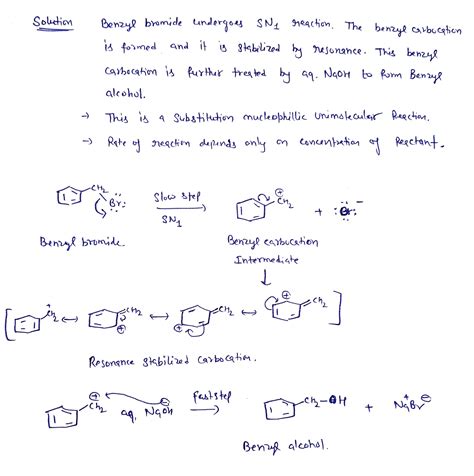 Solution Benzyl bromide undergoes SN1 reaction. The benzyl carbocation
is formed and it is stabilized by resonance. This benzyl
carbocation is further treated by aq. NaOH to form Benzyl
alcohol.
→ This is a Substitution nucleophillic unimolecular Reaction.
→ Rate of reaction depends only on concentration of Reactant.
CH2 Br: Slow step SN1 ⊕ CH2 + :Br:⁻
Benzyl bromide. Benzyl carbocation
Intermediate
[ + CH2 ↔ CH2 ⊕ ↔ ⊕ CH2 ↔ ⊕ CH2 ]
Resonance stabilized carbocation.
⊕ CH2 aq. NaOH ⊖ fast step → CH2-OH + Na⁺Br⊖
Benzyl alcohol.